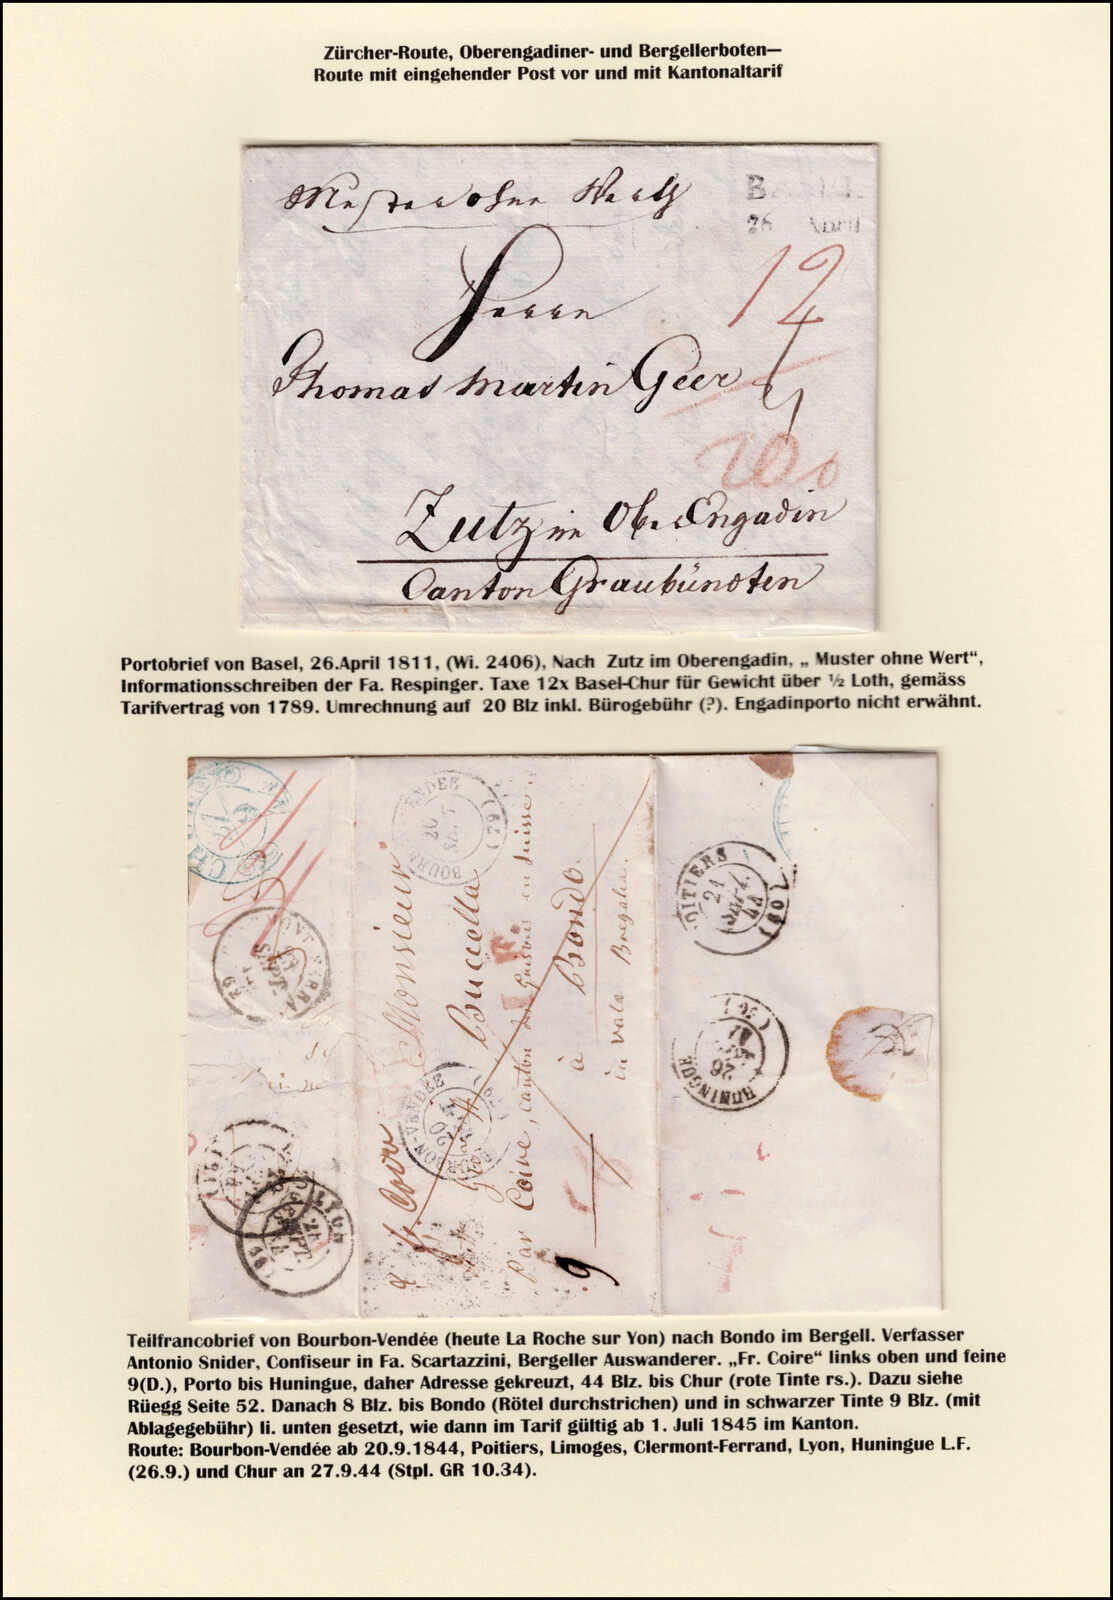 Zürcher-Route, Oberengadiner- und Bergellerboten—
Route mit eingehender Post vor und mit Kantonaltarif
Muster ohne Werth
BASEL
26 April
Herrn
12
Thomas Martin Geer
20
Zutz im Ober Engadin
Canton Graubünden
Portobrief von Basel, 26.April 1811, (Wi. 2406), Nach Zutz im Oberengadin, „ Muster ohne Wert“,
Informationsschreiben der Fa. Respinger. Taxe 12x Basel-Chur für Gewicht über ½ Loth, gemäss
Tarifvertrag von 1789. Umrechnung auf 20 Blz inkl. Bürogebühr (?). Engadinporto nicht erwähnt.
Monsieur
Buccella
Par Coire, canton des Grisons en Suisse
à Bondo
in vals Bregalia.
fr. Coire
9
BOURBON-VENDÉE
20
SEPT.
44
(79)
POITIERS
21
SEPT.
44
HUNINGUE
26
LYON
24
SEPT.
44
Teilfrancobrief von Bourbon-Vendée (heute La Roche sur Yon) nach Bondo im Bergell. Verfasser
Antonio Snider, Confiseur in Fa. Scartazzini, Bergeller Auswanderer. „Fr. Coire“ links oben und feine
9(D.), Porto bis Huningue, daher Adresse gekreuzt, 44 Blz. bis Chur (rote Tinte rs.). Dazu siehe
Rüegg Seite 52. Danach 8 Blz. bis Bondo (Rötel durchstrichen) und in schwarzer Tinte 9 Blz. (mit
Ablagegebühr) li. unten gesetzt, wie dann im Tarif gültig ab 1. Juli 1845 im Kanton.
Route: Bourbon-Vendée ab 20.9.1844, Poitiers, Limoges, Clermont-Ferrand, Lyon, Huningue L.F.
(26.9.) und Chur an 27.9.44 (Stpl. GR 10.34).